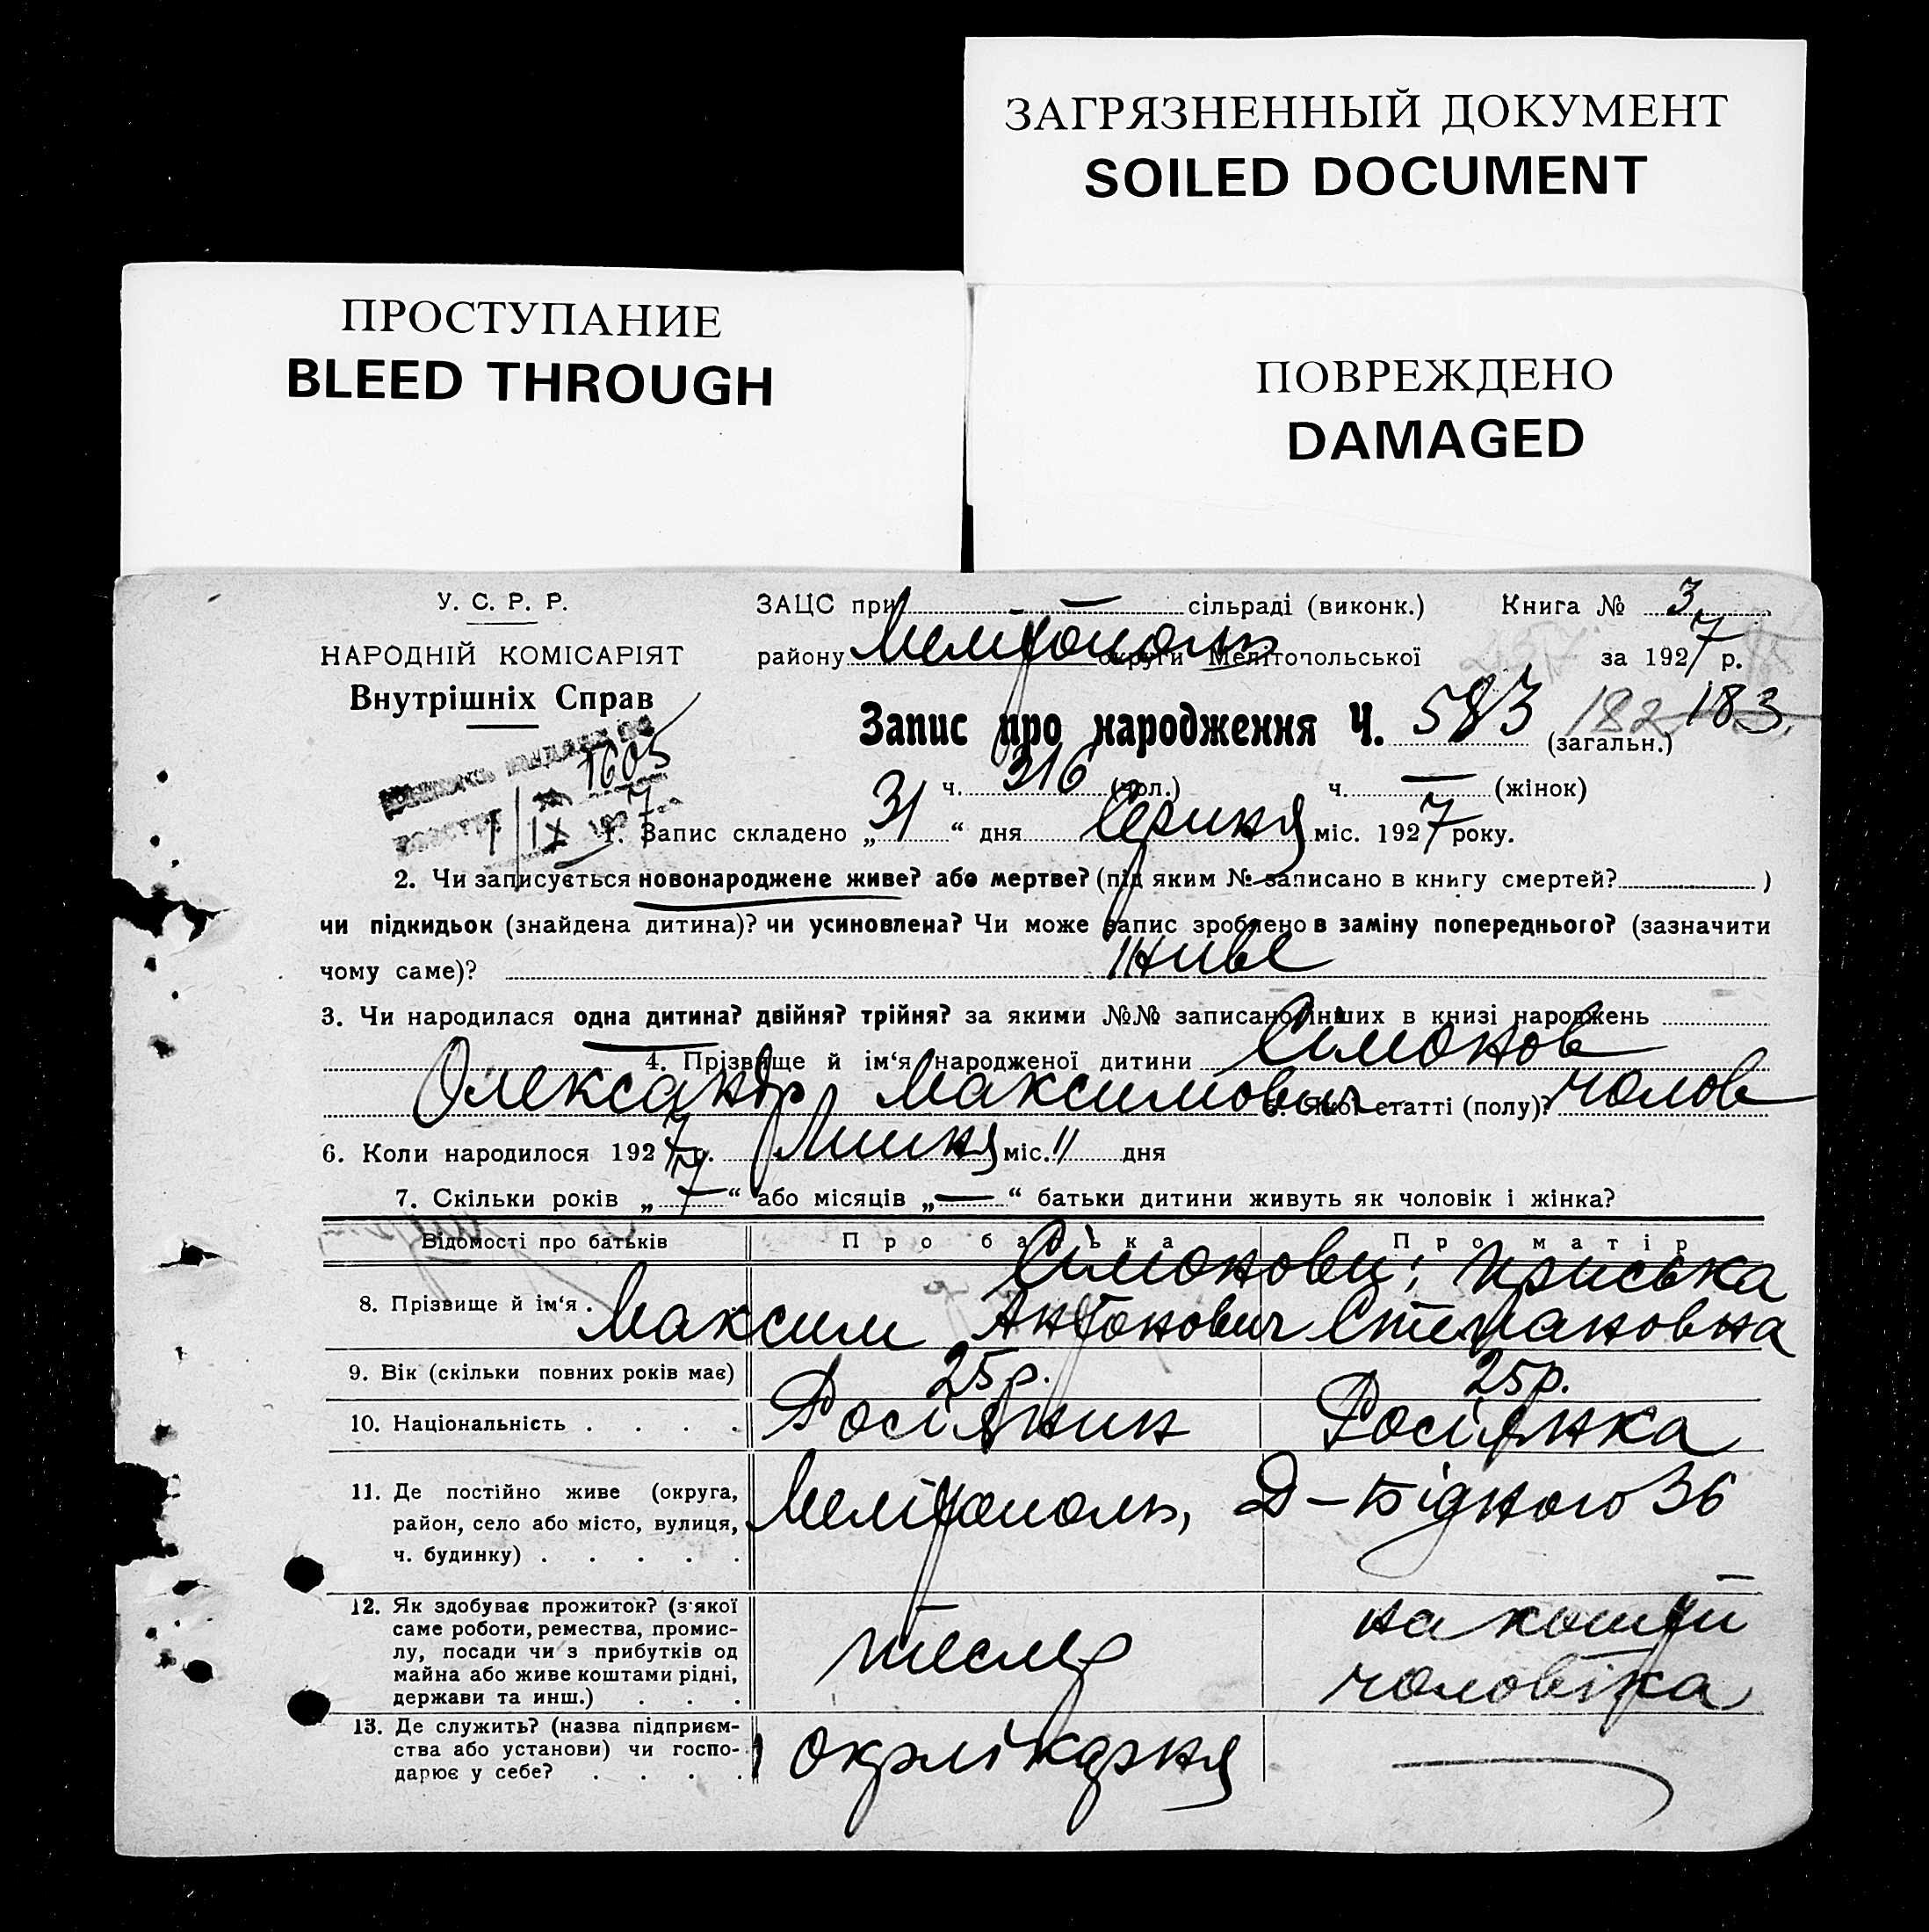 ЗАГРЯЗНЕННЫЙ ДОКУМЕНТ
SOILED DOCUMENT
ПРОСТУПАНИЕ
BLEED THROUGH
ПОВРЕЖДЕНО
DAMAGED
У. С. Р. Р.
НАРОДНІЙ КОМІСАРІЯТ
Внутрішніх Справ
ЗАЦС при — сільраді (виконк.) Книга № 3
району Мелітополь округи Мелітопольської за 1927 р.
Запис про народження Ч. 583 (загальн.) 182 183
1605
ч. 316 (чол.) ч. — (жінок)
1. Запис складено „31“ дня Серпня міс. 1927 року.
2. Чи записується новонароджене живе? або мертве? (під яким № записано в книгу смертей? )
чи підкидьок (знайдена дитина)? чи усиновлена? Чи може запис зроблено в заміну попереднього? (зазначити
чому саме)? живе
3. Чи народилася одна дитина? двійня? трійня? за якими №№ записано інших в книзі народжень
4. Прізвище й ім‘я народженої дитини Сімонов
Олександр Максимович 5. Якої статті (полу)? чолов
6. Коли народилося 1927 р. Липня міс. 11 дня
7. Скільки років „7“ або місяців „—“ батьки дитини живуть як чоловік і жінка?
Відомості про батьків Про батька Про матір
8. Прізвище й ім‘я . Сімонови: Приська
Максим Антонович Степановна
9. Вік (скільки повних років має) 25 р. 25 р.
10. Національність . . . . Росіянин Росіянка
11. Де постійно живе (округа,
район, село або місто, вулиця,
ч. будинку) . . . . . Мелітополь, Д–Бідного 36
12. Як здобуває прожиток? (з'якої
саме роботи, ремества, промис-
лу, посади чи з прибутків од
майна або живе коштами рідні,
держави та инш.) . . . тесляр на кошти
чоловіка
13. Де служить? (назва підприєм-
ства або установи) чи госпо-
дарює у себе? . . . . окрлікарня —